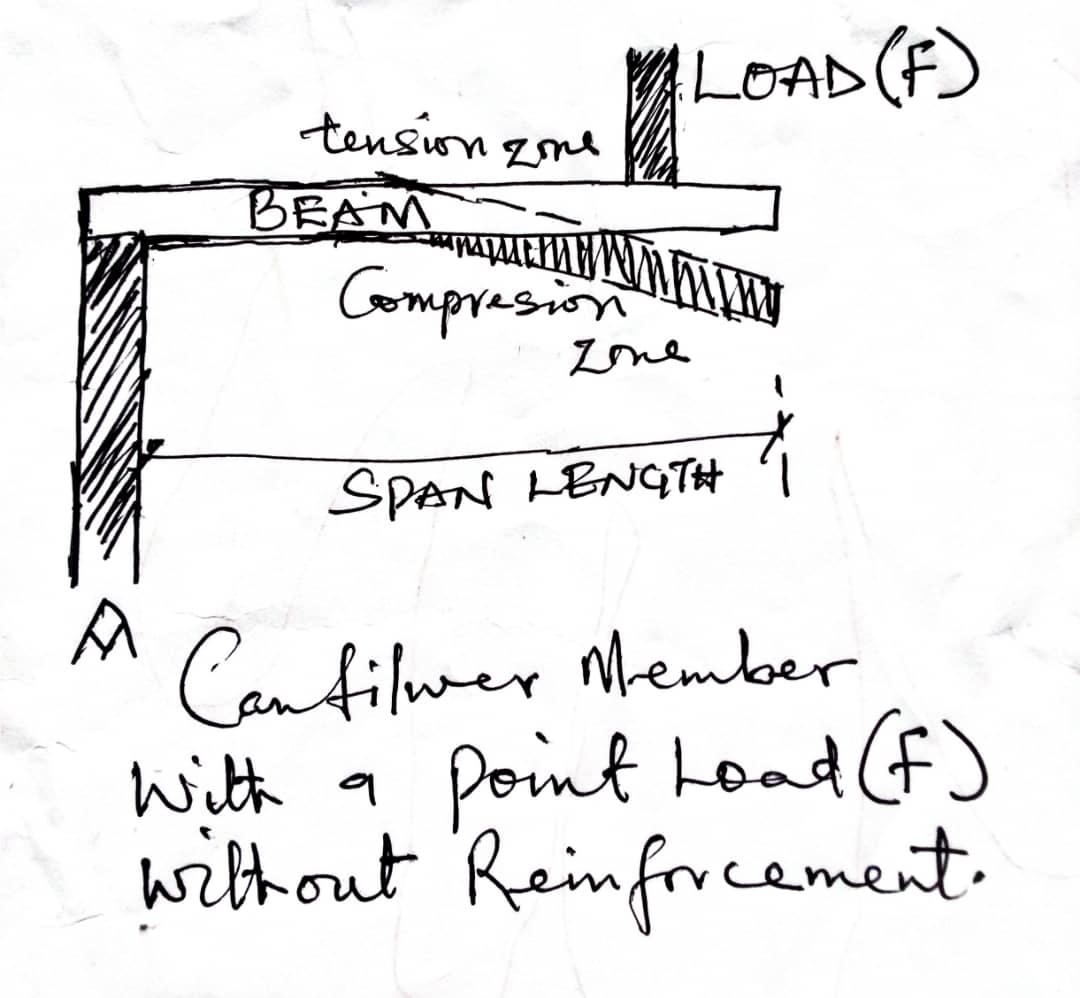 LOAD (F)
tension zone
BEAM
Compresion
zone
SPAN LENGTH
A Cantilwer Member
with a point Load (F)
without Reinforcement.